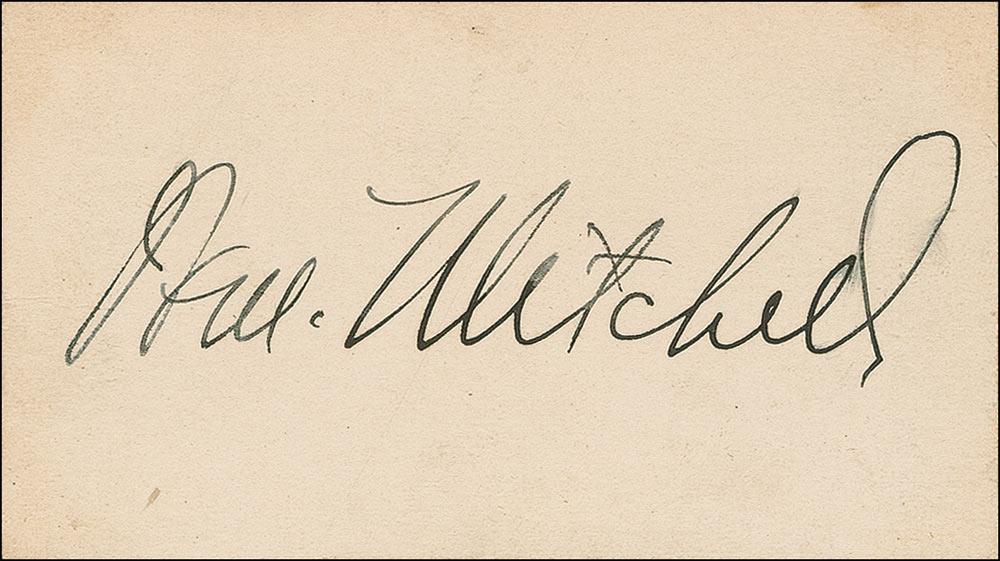 Wm. Mitchell